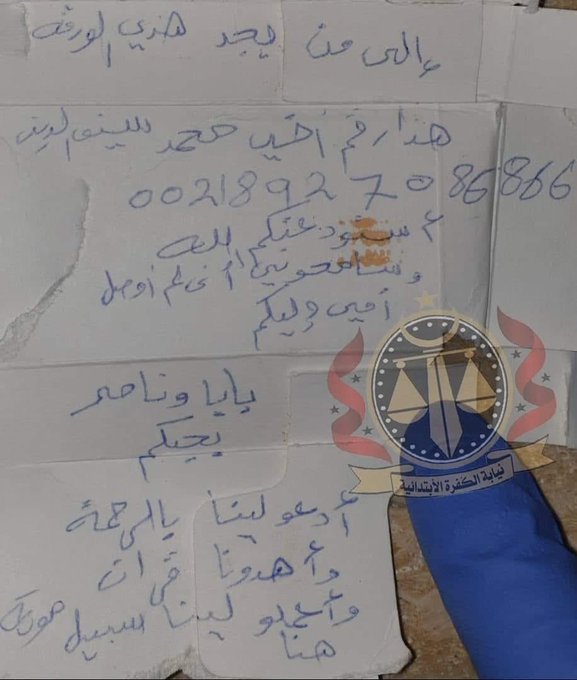 والى من يجد هذي الورقة
هذا رقم أخي محمد سيف الدين
00218927086866
أستودعتكم الله
وسامحوني أنى لم أوصل
أمي وليكم
بابا وناصر
يحبكم
أدعو لينا بالرحمة
وأهدونا قرآن
وأعملو لينا سبيل
هنا
نيابة الكفرة الأبتدائية